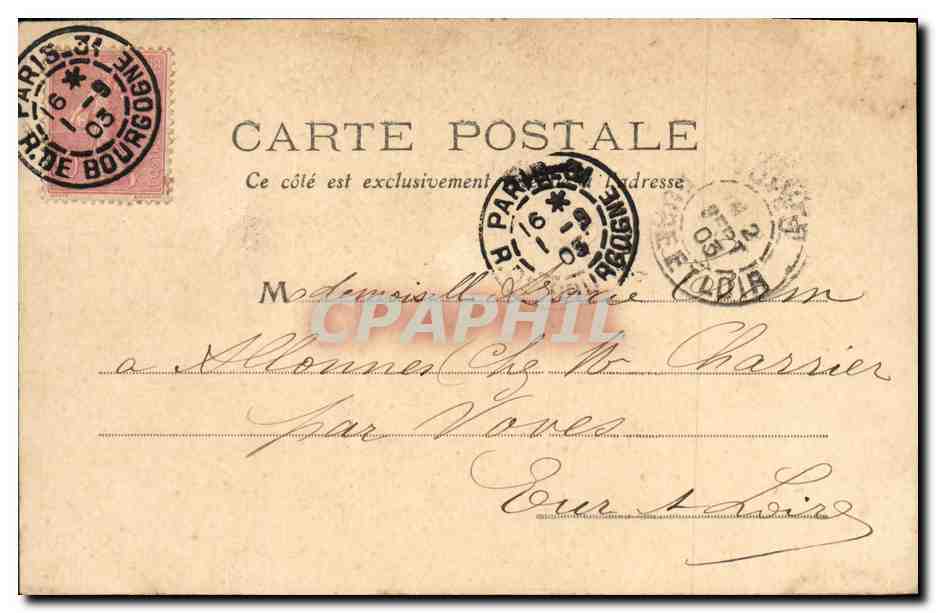 PARIS-31 R. DE BOURGOGNE
16 9
1 03
CARTE POSTALE
Ce côté est exclusivement adresse
PARIS-31 R BOURGOGNE
16 9
1 03
2
SEPT
03
EURE ET LOIR
CPAPHIL
Mademoiselle
à Allonnes Chez Mr Charrier
par Voves
Eur et Loire